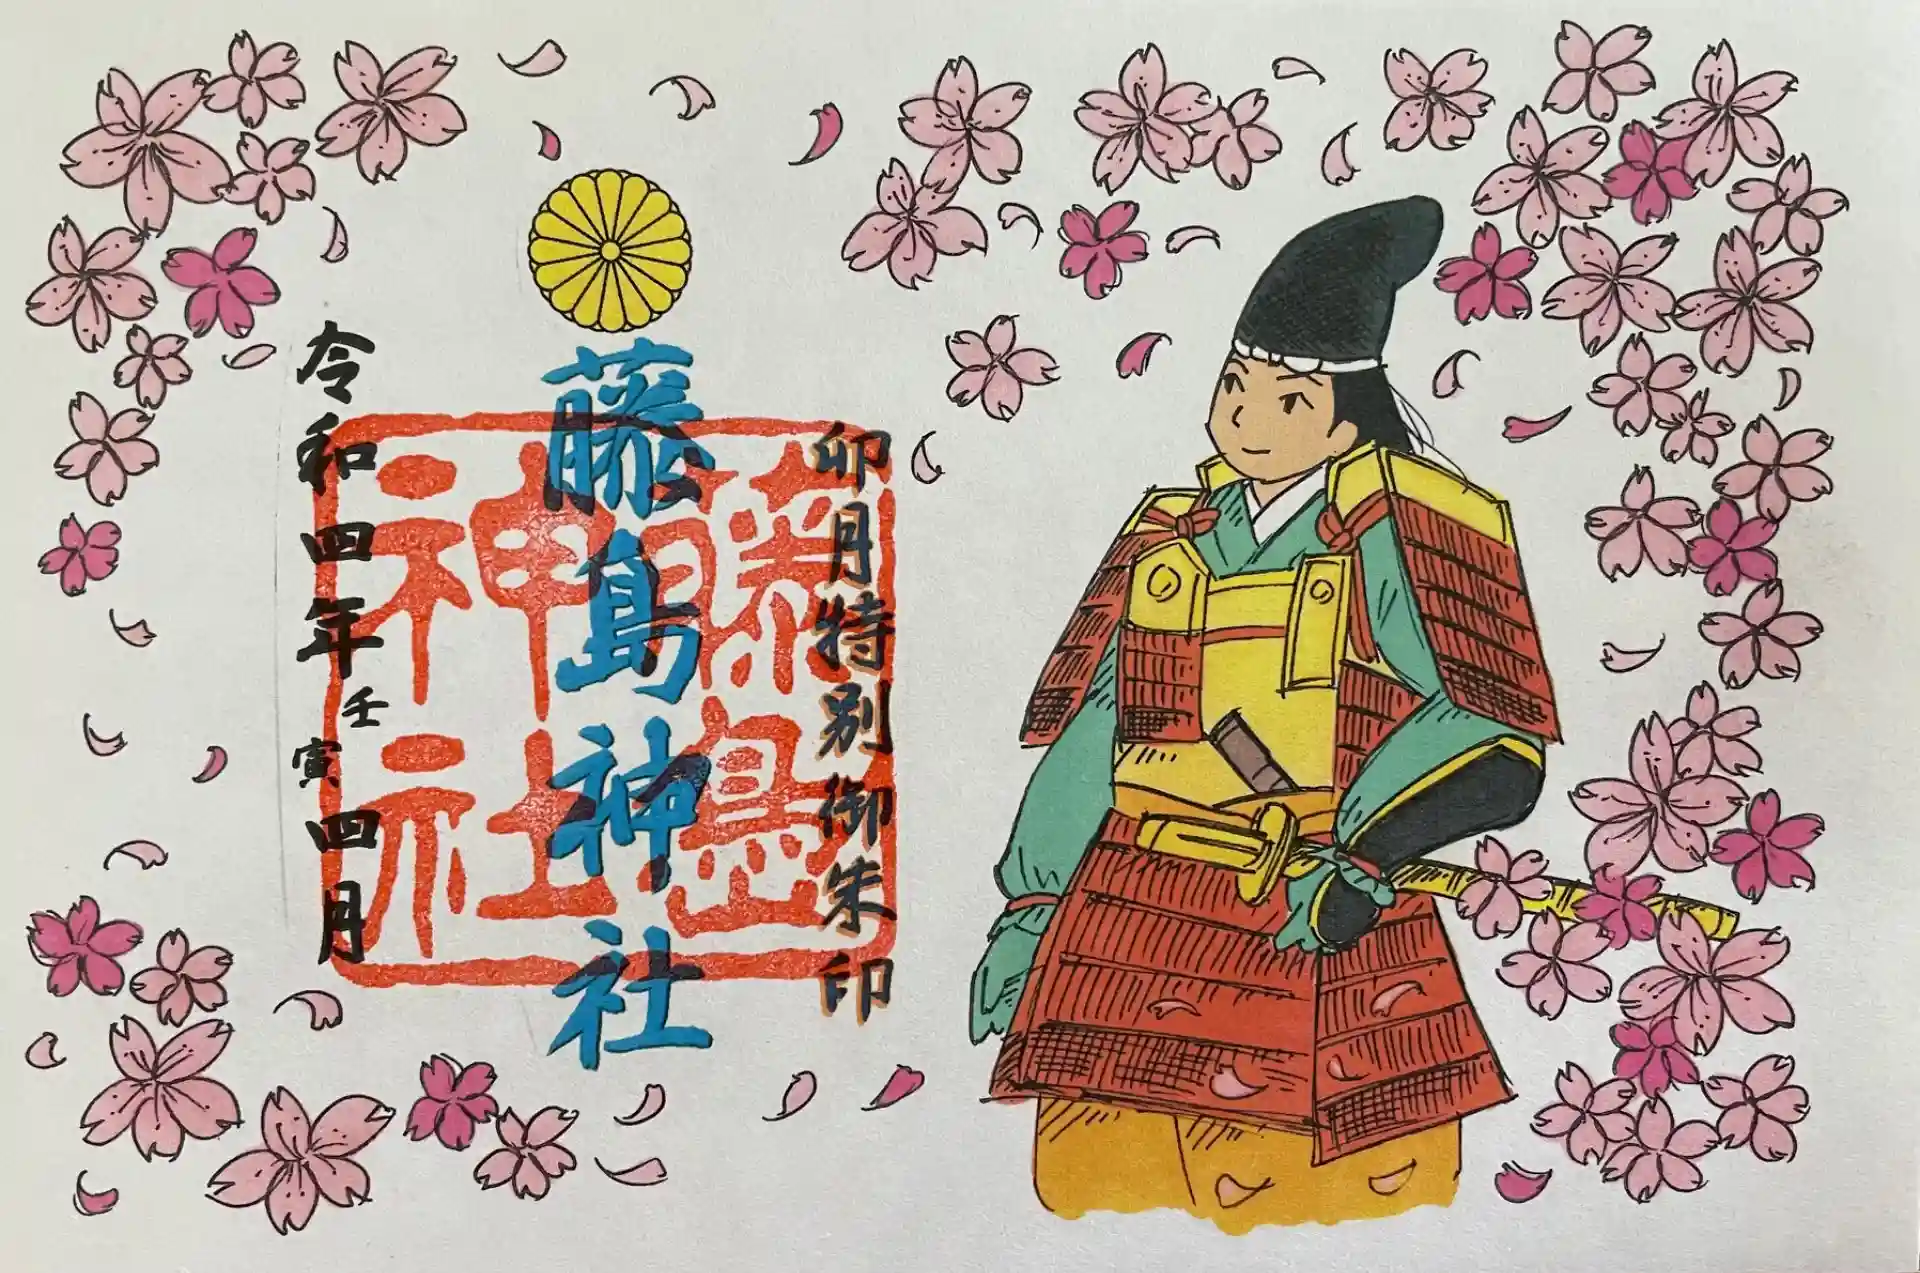 卯月特別御朱印
藤島神社
藤島神社
令和四年壬寅四月